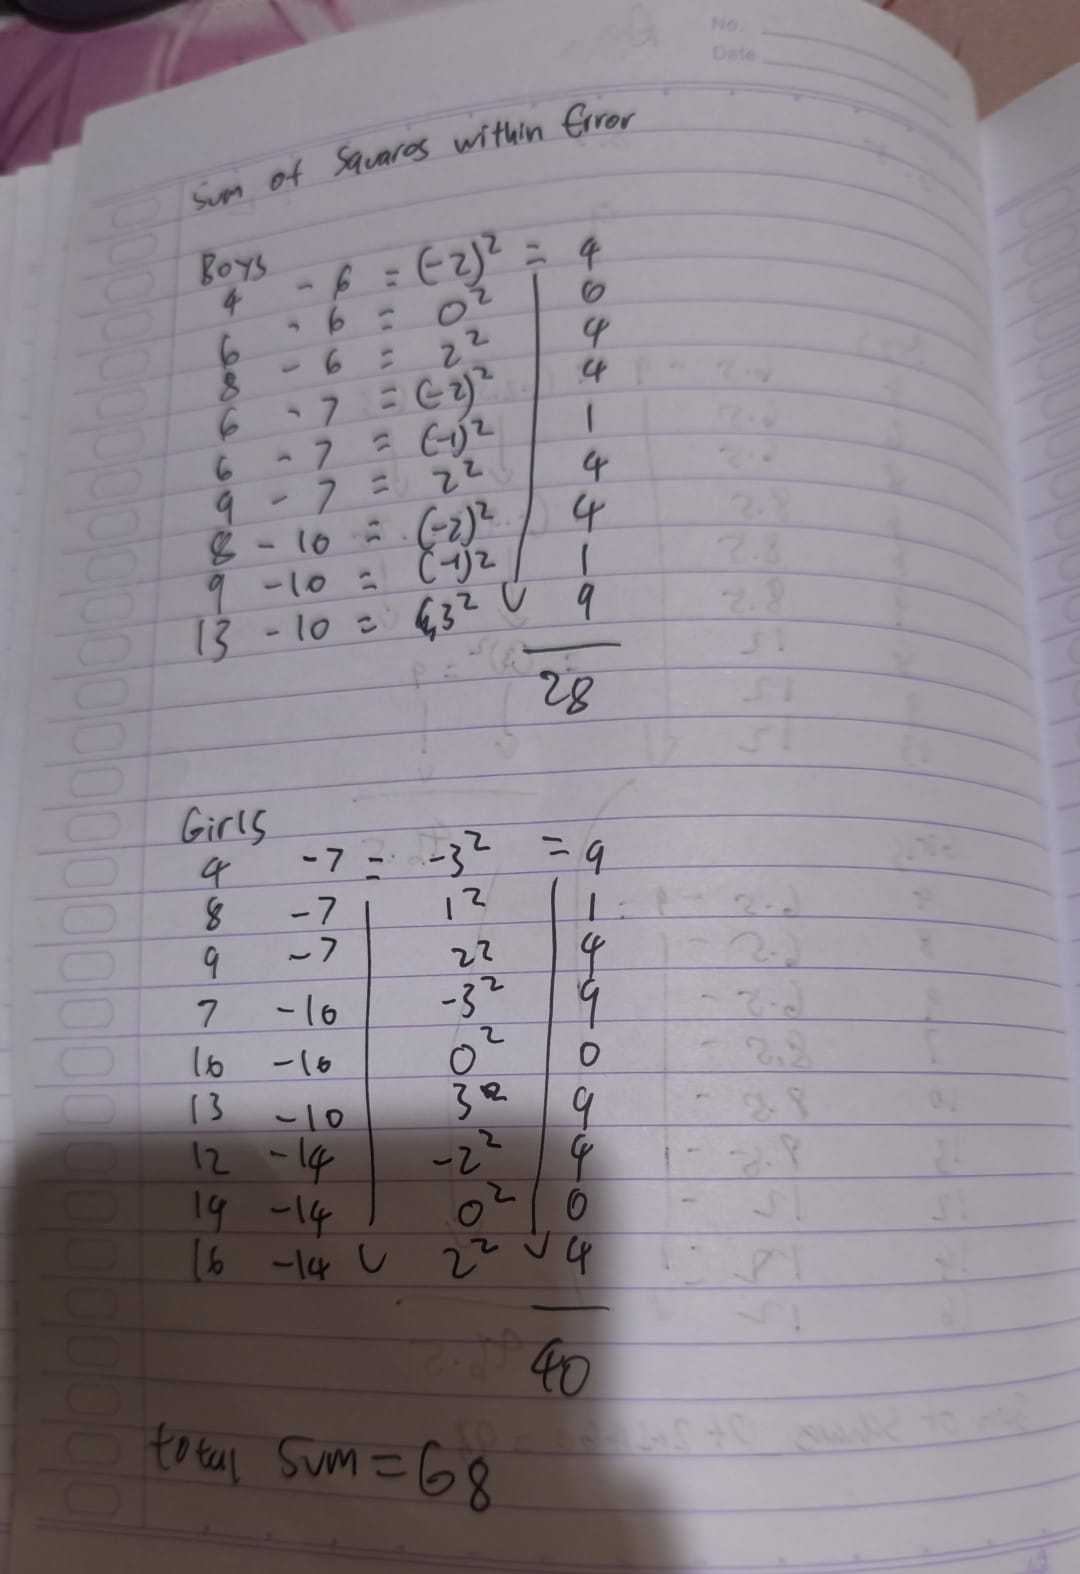 No.
Date
Sum of Squares within Error
Boys
4 - 6 = (-2)² = 4
6 - 6 = 0² 0
8 - 6 = 2² 4
6 - 7 = (-2)² 4
6 - 7 = (-1)² 1
9 - 7 = 2² 4
8 - 10 = (-2)² 4
9 - 10 = (-1)² 1
13 - 10 = 3² 9
28
Girls
4 - 7 = -3² = 9
8 - 7 1² 1
9 - 7 2² 4
7 - 10 -3² 9
10 - 10 0² 0
13 - 10 3² 9
12 - 14 -2² 4
14 - 14 0² 0
16 - 14 2² 4
40
total sum = 68